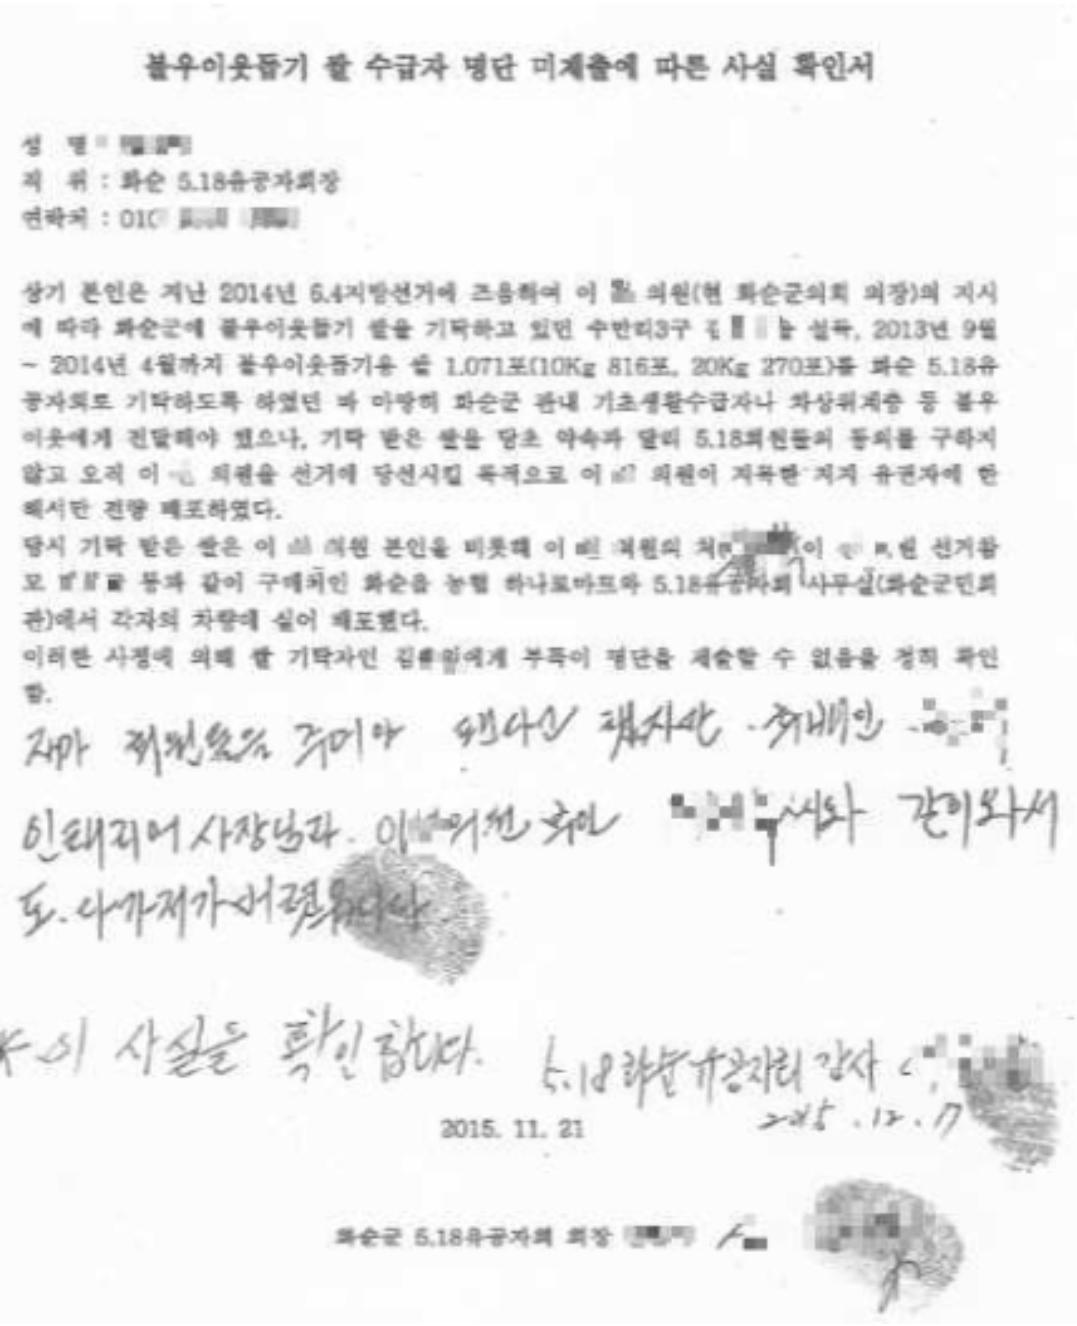 불우이웃돕기 쌀 수급자 명단 미제출에 따른 사실 확인서
성 명 :
직 위 : 화순 5.18유공자회장
연락처 : 010
상기 본인은 지난 2014년 6.4지방선거에 즈음하여 이 의원(현 화순군의회 의장)의 지시
에 따라 화순군에 불우이웃돕기 쌀을 기탁하고 있던 수만리3구 설득, 2013년 9월
~ 2014년 4월까지 불우이웃돕기용 쌀 1.071포(10Kg 816포, 20Kg 270포)를 화순 5.18유
공자회로 기탁하도록 하였던 바 마땅히 화순군 관내 기초생활수급자나 차상위계층 등 불우
이웃에게 전달해야 했으나, 기탁 받은 쌀을 당초 약속과 달리 5.18회원들의 동의를 구하지
않고 오직 이 의원을 선거에 당선시킬 목적으로 이 의원이 지목한 지지 유권자에 한
해서만 전량 배포하였다.
당시 기탁 받은 쌀은 이 의원 본인을 비롯해 이 의원의 처 선거참
모 등과 같이 구매처인 화순읍 농협 하나로마트와 5.18유공자회 사무실(화순군민회
관)에서 각자의 차량에 실어 배포했다.
이러한 사정에 의해 쌀 기탁자인 김 에게 부득이 명단을 제출할 수 없음을 정히 확인
함.
인태리어 사장님과. 이 의원 같이와서
도. 다가저가버렸습니다
이 사실을 확인합니다. 5.18화순유공자회 감사
2015. 12. 17
2015. 11. 21
화순군 5.18유공자회 회장